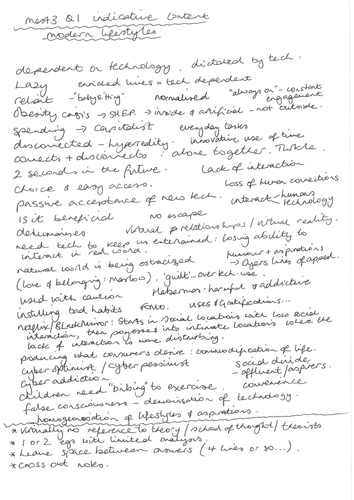 MEST3 Q1 indicative content
modern lifestyles
dependent on technology, dictated by tech.
Lazy enriched lives = tech dependent
reliant - "babysitting" normalised "always on" - constant engagement
Obesity crisis → SHEP. → inside & artificial - not outside.
spending → capitalist everyday tasks
disconnected - hyperreality. innovative use of time
connects + disconnects : alone together, Turkle.
2 seconds in the future. Lack of interaction
choice & easy access. Loss of human connections
passive acceptance of new tech. interact humans technology
Is it beneficial no escape
dehumanises virtual relationships / virtual reality.
need tech to keep us entertained: losing ability to
interact in real world. humour + aspirations
natural world is being ostracized → Ogers lives appeal.
(love & belonging: maslow). 'guilt' - over tech use.
used with caution Habermas: harmful & addictive
instilling bad habits FOMO. uses & Gratifications...
netflix/Blackmirror: starts in social locations with low social
interaction, then progresses into intimate locations where the
lack of interaction is more disturbing.
producing what consumers desire: commodification of life.
cyber optimist / cyber pessimist social divide
cyber addiction. - affluent / aspirers.
children need 'bribing' to exercise. convenience
false consciousness - demonisation of technology.
homogenisation of lifestyles & aspirations.
* Virtually no reference to theory / school of thought / theorists
* 1 or 2 egs with limited analysis.
* Leave space between answers (4 lines or so...)
* cross out notes.